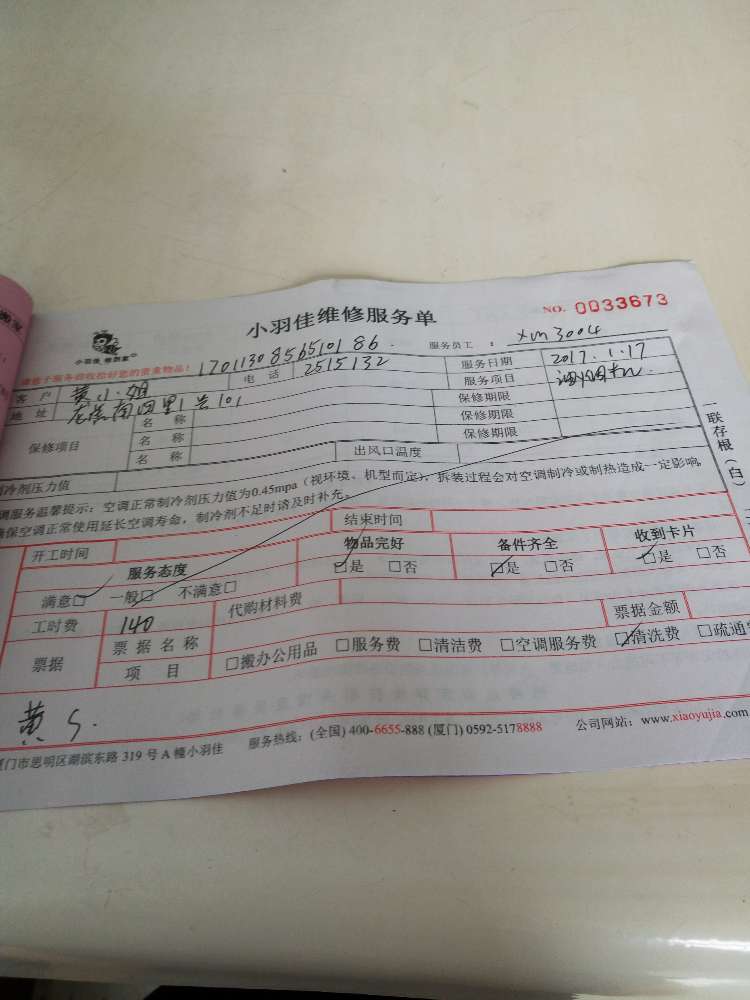 小羽佳维修服务单
NO. 0033673
小羽佳 修到家
请您于服务前收拾好您的贵重物品！ 1701130856510186 服务员工 ： xm3004
客 户 黄小姐 电 话 2515132 服务日期 2017.1.17
地 址 1号101 服务项目
保修项目 名 称 保修期限
名 称 保修期限
名 称 保修期限
制冷剂压力值 出风口温度
空调服务温馨提示：空调正常制冷剂压力值为0.45mpa（视环境、机型而定），拆装过程会对空调制冷或制热造成一定影响，
确保空调正常使用延长空调寿命，制冷剂不足时请及时补充。
开工时间 结束时间
服务态度 物品完好 备件齐全 收到卡片
满意☑ 一般□ 不满意□ ☑是 □否 ☑是 □否 ☑是 □否
工时费 140 代购材料费
票据 票 据 名 称 票据金额
项 目 □搬办公用品 □服务费 □清洁费 □空调服务费 ☑清洗费 □疏通
黄S.
厦门市思明区湖滨东路 319 号 A 幢小羽佳 服务热线：(全国) 400-6655-888 (厦门) 0592-5178888 公司网站：www.xiaoyujia.com
一联存根（白）